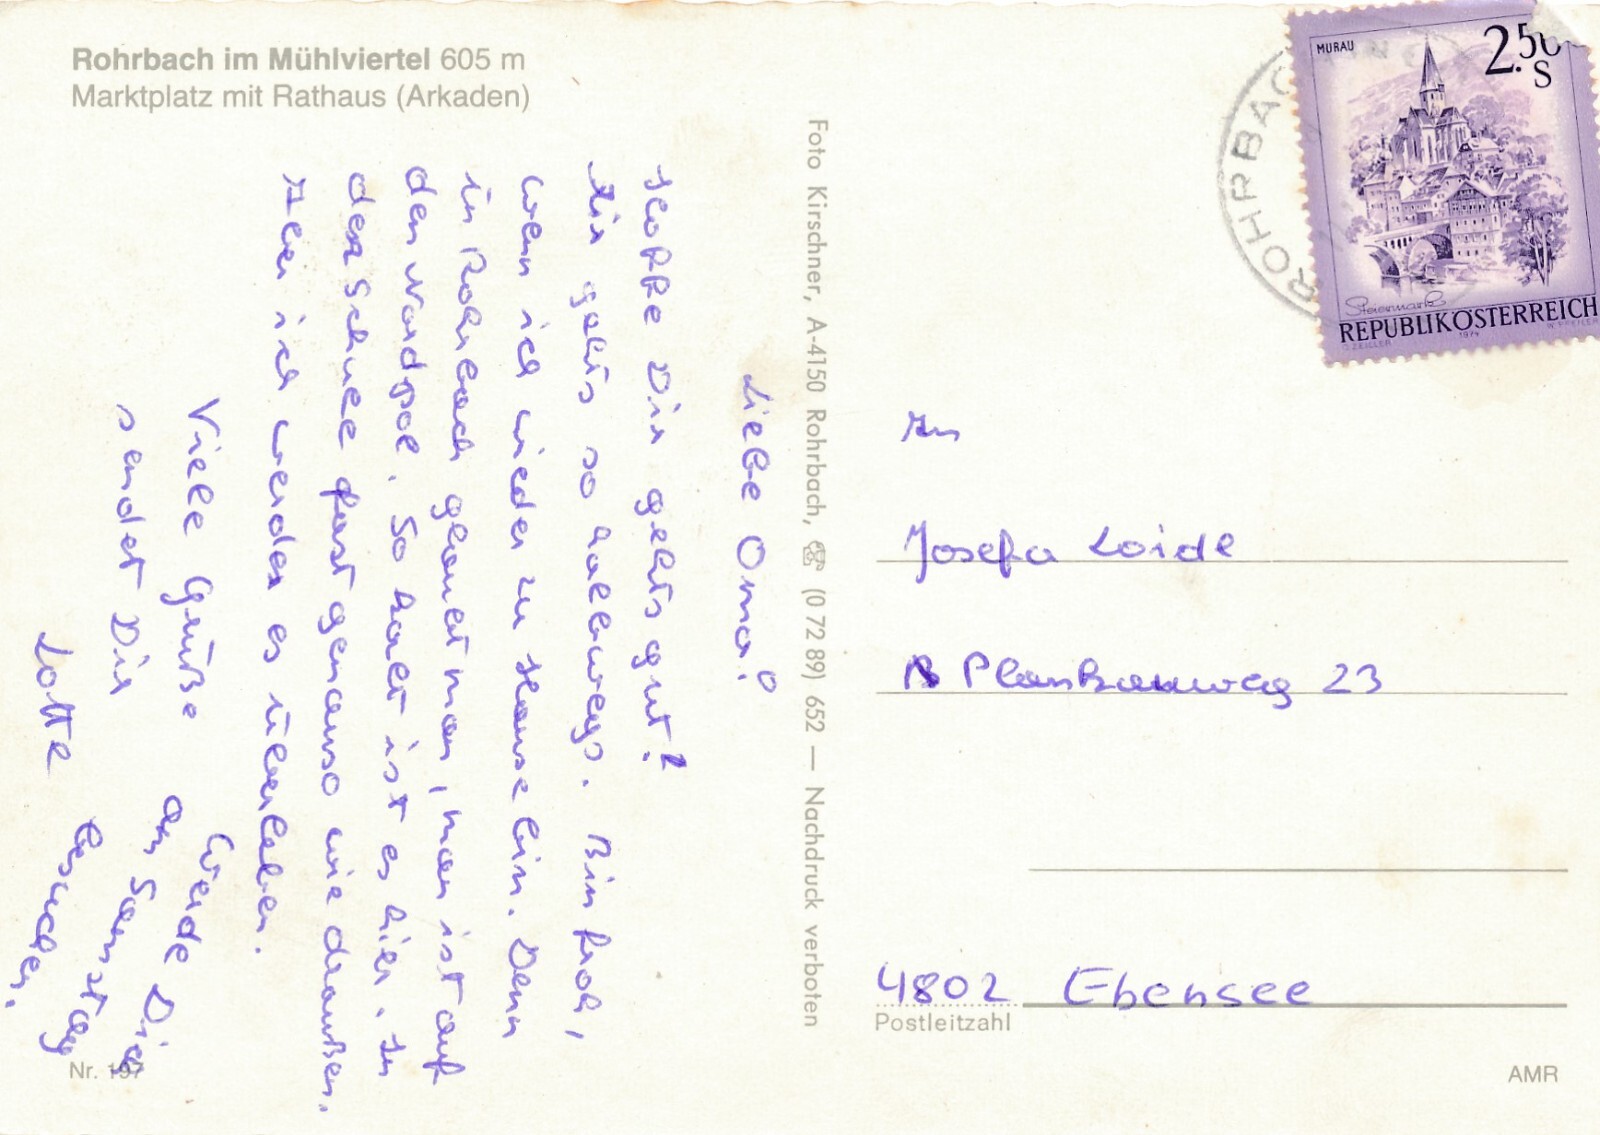 Rohrbach im Mühlviertel 605 m
Marktplatz mit Rathaus (Arkaden)
Liebe Oma!
Hoffe Dir gehts gut?
Mir gehts so halbwegs. Bin froh,
wenn ich wieder zu Hause bin. Denn
in Rohrbach glaubt man, man ist auf
den Nordpol. So kalt ist es hier. In
der Schule fast genauso wie draußen.
Aber ich werde es überleben.
Viele Grüße
sendet Dir
Lotte
Werde Dich
am Samstag
besuchen.
Nr. 197
Foto Kirschner, A-4150 Rohrbach, ☎ (0 72 89) 652 — Nachdruck verboten
ROHRBAC
MURAU
2.50
S
Steiermark
REPUBLIK ÖSTERREICH
O.ZEILLER 1974 W.PFEILER
An
Josefa Loidl
Plankauweg 23
4802 Ebensee
Postleitzahl
AMR